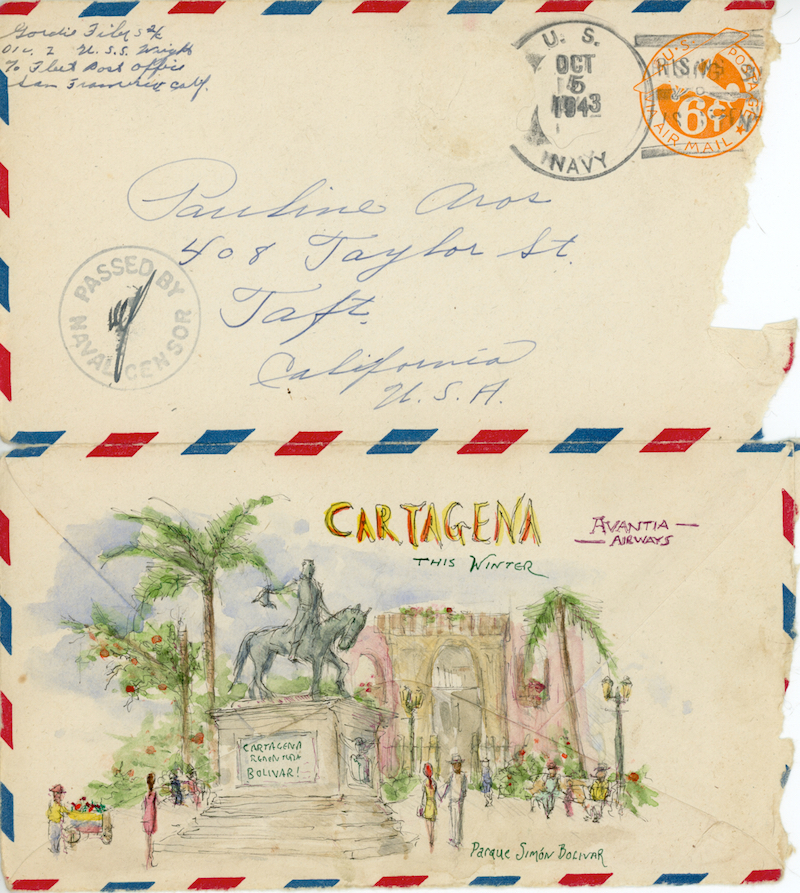 Gordie Files S2/c
Div. 2 U.S.S. Wright
To Fleet Post Office
San Francisco Calif.
U. S.
OCT
5
1943
NAVY
U.S. POSTAGE
6¢
VIA AIR MAIL
RISING
Pauline Aros
408 Taylor St.
Taft.
California
U.S.A.
PASSED BY
NAVAL CENSOR
CARTAGENA
THIS WINTER
AVANTIA
AIRWAYS
CARTAGENA
BOLIVAR!
Parque Simón Bolivar